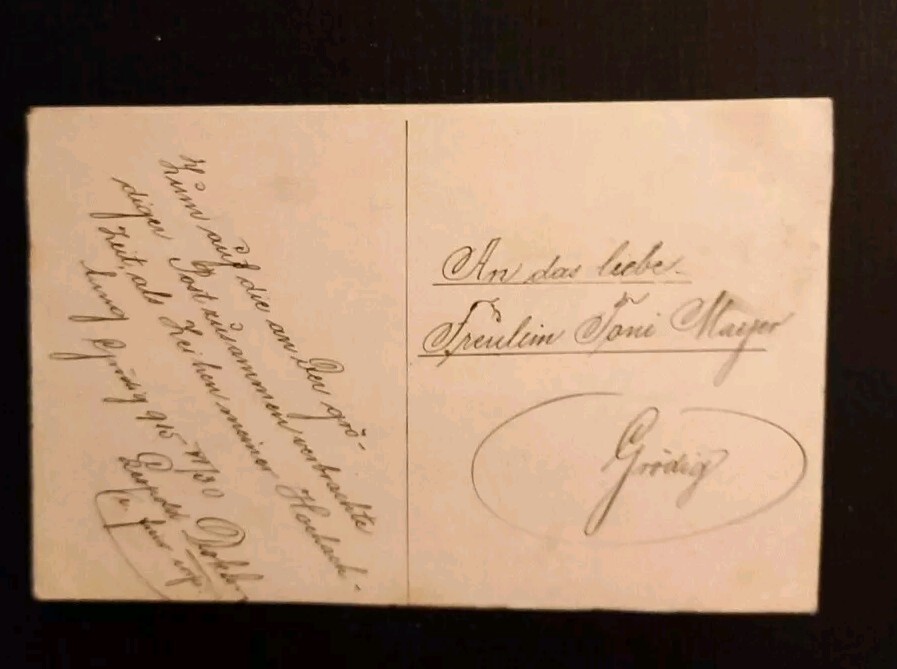 Zum auf die an der grö-
diger Post zusammen verbrachte
Zeit, als Zeihen meiner Hochach-
tung Grödig 915
An das liebe
Freulein Toni Mayer
Grödig